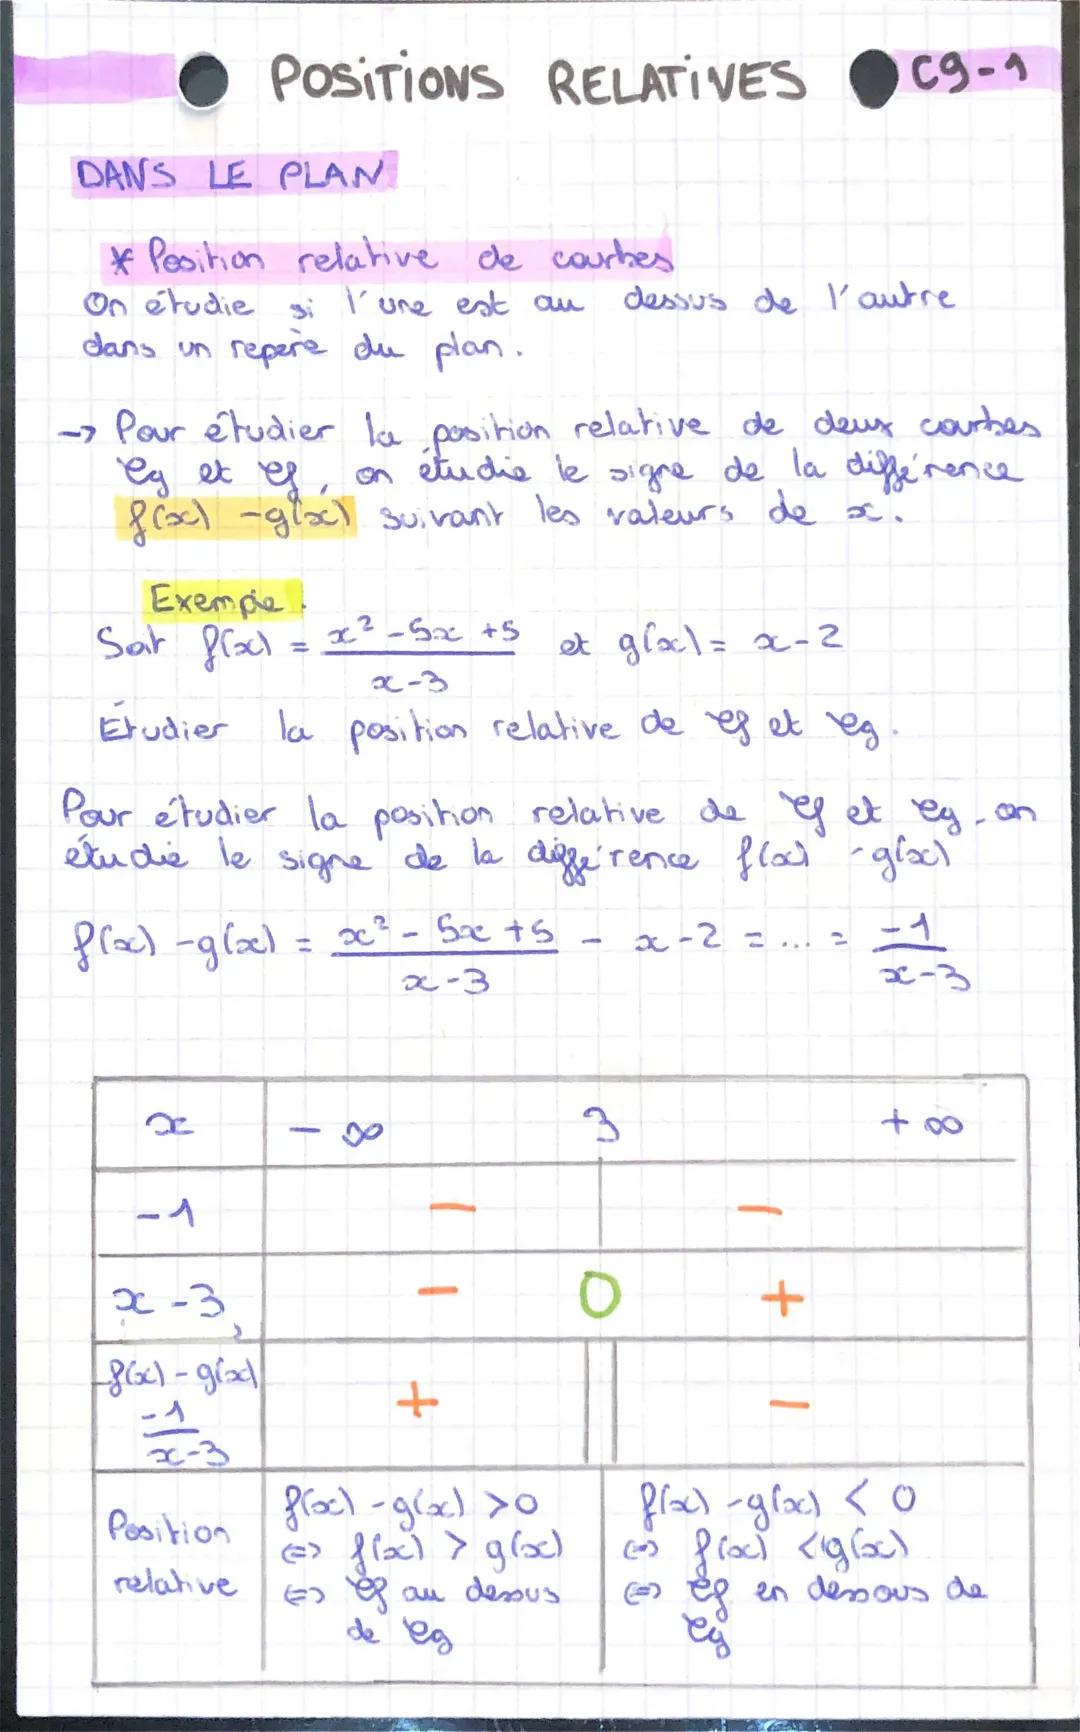 POSITIONS RELATIVES C9-1
DANS LE PLAN
* Position relative de courbes
On étudie si l'une est au dessus de l'autre
dans un repère du plan.
→ Pour étudier la position relative de deux courbes
Cg et Cf, on étudie le signe de la différence
f(x) - g(x) suivant les valeurs de x.
Exemple.
Soit f(x) = (x² - 5x + 5)/(x - 3) et g(x) = x - 2
Étudier la position relative de Cf et Cg.
Pour étudier la position relative de Cf et Cg, on
étudie le signe de la différence f(x) - g(x)
f(x) - g(x) = (x² - 5x + 5)/(x - 3) - x - 2 = ... = -1/(x - 3)
x -∞ 3 +∞
-1 - -
x - 3 - 0 +
f(x) - g(x)
-1/(x - 3) + || -
Position relative
f(x) - g(x) > 0
⇔ f(x) > g(x)
⇔ Cf au dessus
de Cg
f(x) - g(x) < 0
⇔ f(x) < g(x)
⇔ Cf en dessous de
Cg